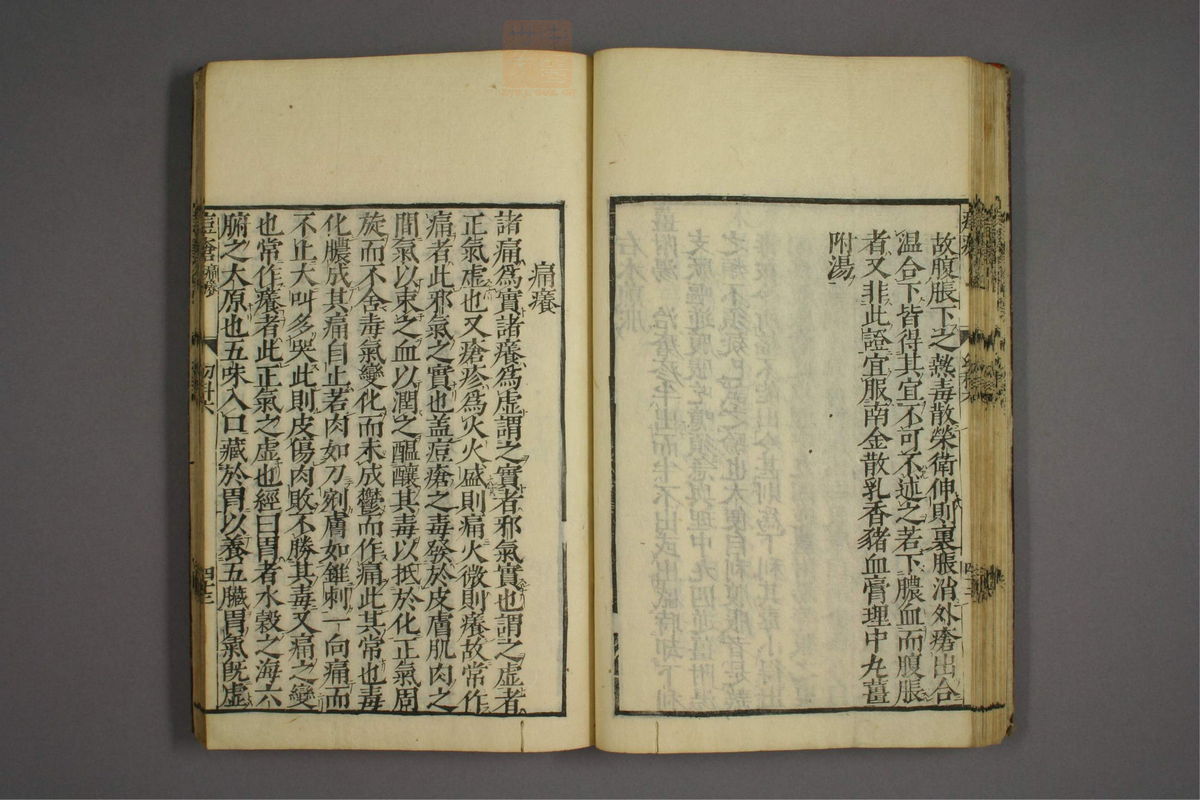 故腹脹下之熱毒散榮衛伸則裏脹消外瘡出合
温合下皆得其宜不可不述之若下膿血而腹脹
者又非此證宜服南金散乳香猪血膏理中丸薑
附湯
痛癢
諸痛爲實諸癢爲虚謂之實者邪氣實也謂之虚者
正氣虚也又瘡疹爲火火盛則痛火微則癢故常作
痛者此邪氣之實也盖痘瘡之毒發於皮膚肌肉之
間氣以束之血以潤之醞釀其毒以抵於化正氣周
旋而不舍毒氣變化而未成鬱而作痛此其常也毒
化膿成其痛自止若肉如刀剜膚如錐刺一向痛而
不止大叫多哭此則皮傷肉敗不勝其毒又痛之變
也常作癢者此正氣之虚也經曰胃者水穀之海六
腑之大原也五味入口藏於胃以養五臟胃氣既虚
痘瘡
四十三